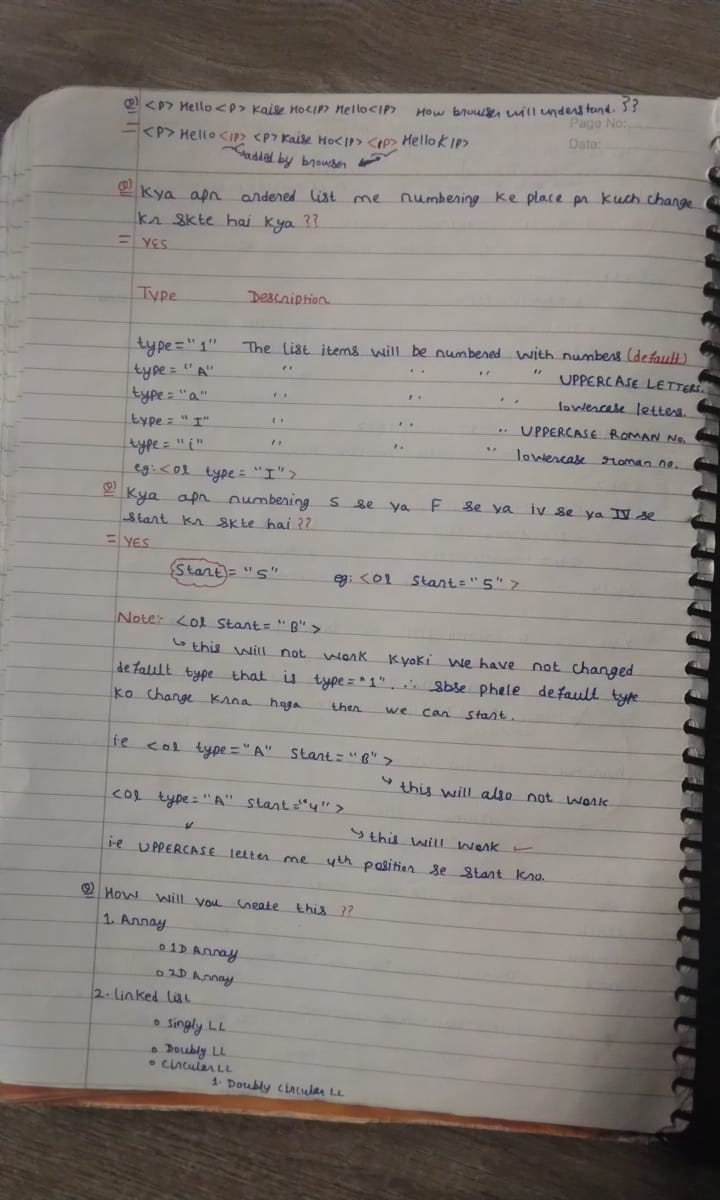 Q) <P> Hello <P> Kaise Ho</P> Hello</P> How browser will understand. ??
Page No:
= <P> Hello </P> <P> Kaise Ho</P> </P> Hello </P>
Date:
added by browser
Q) Kya apn ordered list me numbering ke place pr kuch change
kr skte hai kya ??
= YES
Type Description
type="1" The list items will be numbered with numbers (default)
type="A" " " " " UPPERCASE LETTERS.
type="a" " " " lowercase letters.
type="I" " " " UPPERCASE ROMAN No.
type="i" " " " lowercase roman no.
eg: <ol type="I">
Q) Kya apn numbering 5 se ya F se ya iv se ya IV se
start kr skte hai ??
= YES
Start = "5" eg: <ol start="5">
Note:- <ol start="B">
↳ this will not work kyoki we have not changed
default type that is type="1". ∴ sbse phele default type
ko change krna hoga then we can start.
ie <ol type="A" start="B">
↳ this will also not work
<ol type="A" start="4">
↳ this will work ✓
i.e UPPERCASE letter me 4th position se start kro.
Q) How will you create this ??
1. Array
o 1D Array
o 2D Array
2. linked list
o Singly LL
o Doubly LL
o Circular LL
1. Doubly circular LL